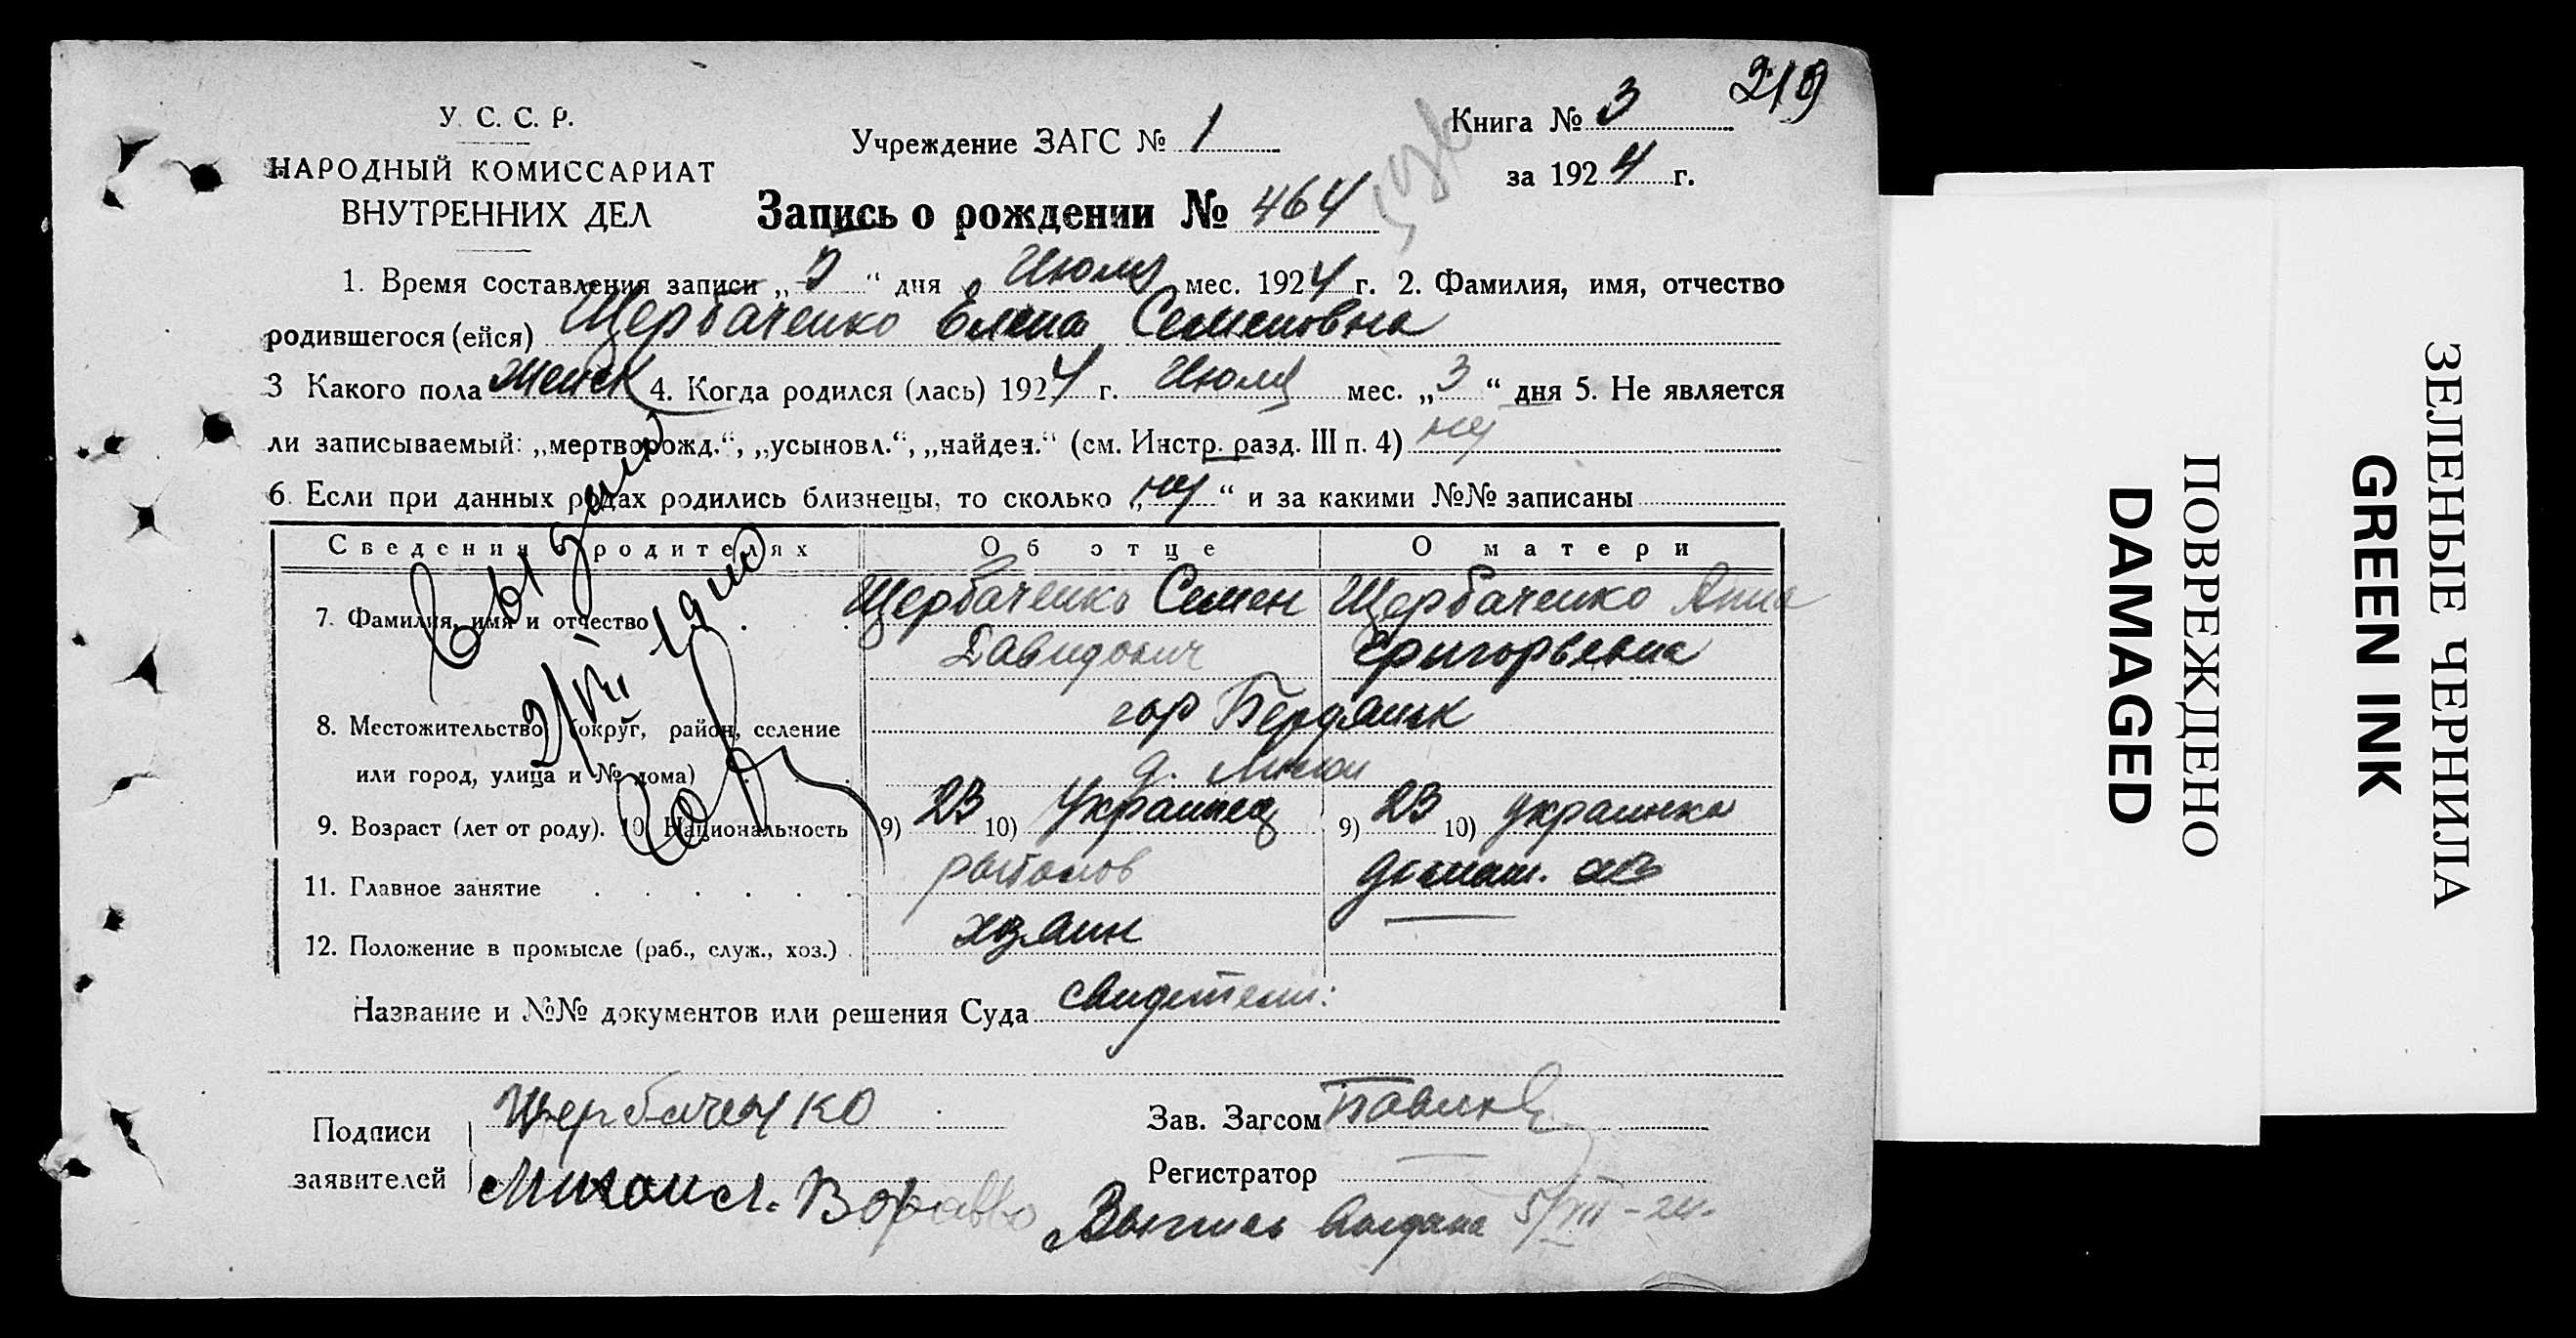 219
У. С. С. Р.
НАРОДНЫЙ КОМИССАРИАТ
ВНУТРЕННИХ ДЕЛ
Учреждение ЗАГС № 1
Книга № 3
за 1924 г.
Запись о рождении № 464
1. Время составления записи „ “ дня Июля мес. 1924 г. 2. Фамилия, имя, отчество
родившегося (ейся) Щербаченко Елена Семеновна
3 Какого пола женск 4. Когда родился (лась) 1924 г. Июля мес. „3“ дня 5. Не является
ли записываемый: „мертворожд.“, „усыновл.“, „найден.“ (см. Инстр. разд. III п. 4) нет
6. Если при данных родах родились близнецы, то сколько „нет“ и за какими №№ записаны
Сведения о родителях Об отце О матери
7. Фамилия, имя и отчество Щербаченко Семен Щербаченко Анна
Давидович Григорьевна
8. Местожительство (округ, район, селение гор Бердянск
или город, улица и № дома) д.
9. Возраст (лет от роду). 10. Национальность 9) 23 10) Украинец 9) 23 10) украинка
11. Главное занятие рыболов домаш. хоз
12. Положение в промысле (раб., служ., хоз.) хозяин
Название и №№ документов или решения Суда свидетели:
Подписи Щербаченко
заявителей
Зав. Загсом
Регистратор
Выпись выдана 5/VII-24.
ПОВРЕЖДЕНО
DAMAGED
ЗЕЛЕНЫЕ ЧЕРНИЛА
GREEN INK